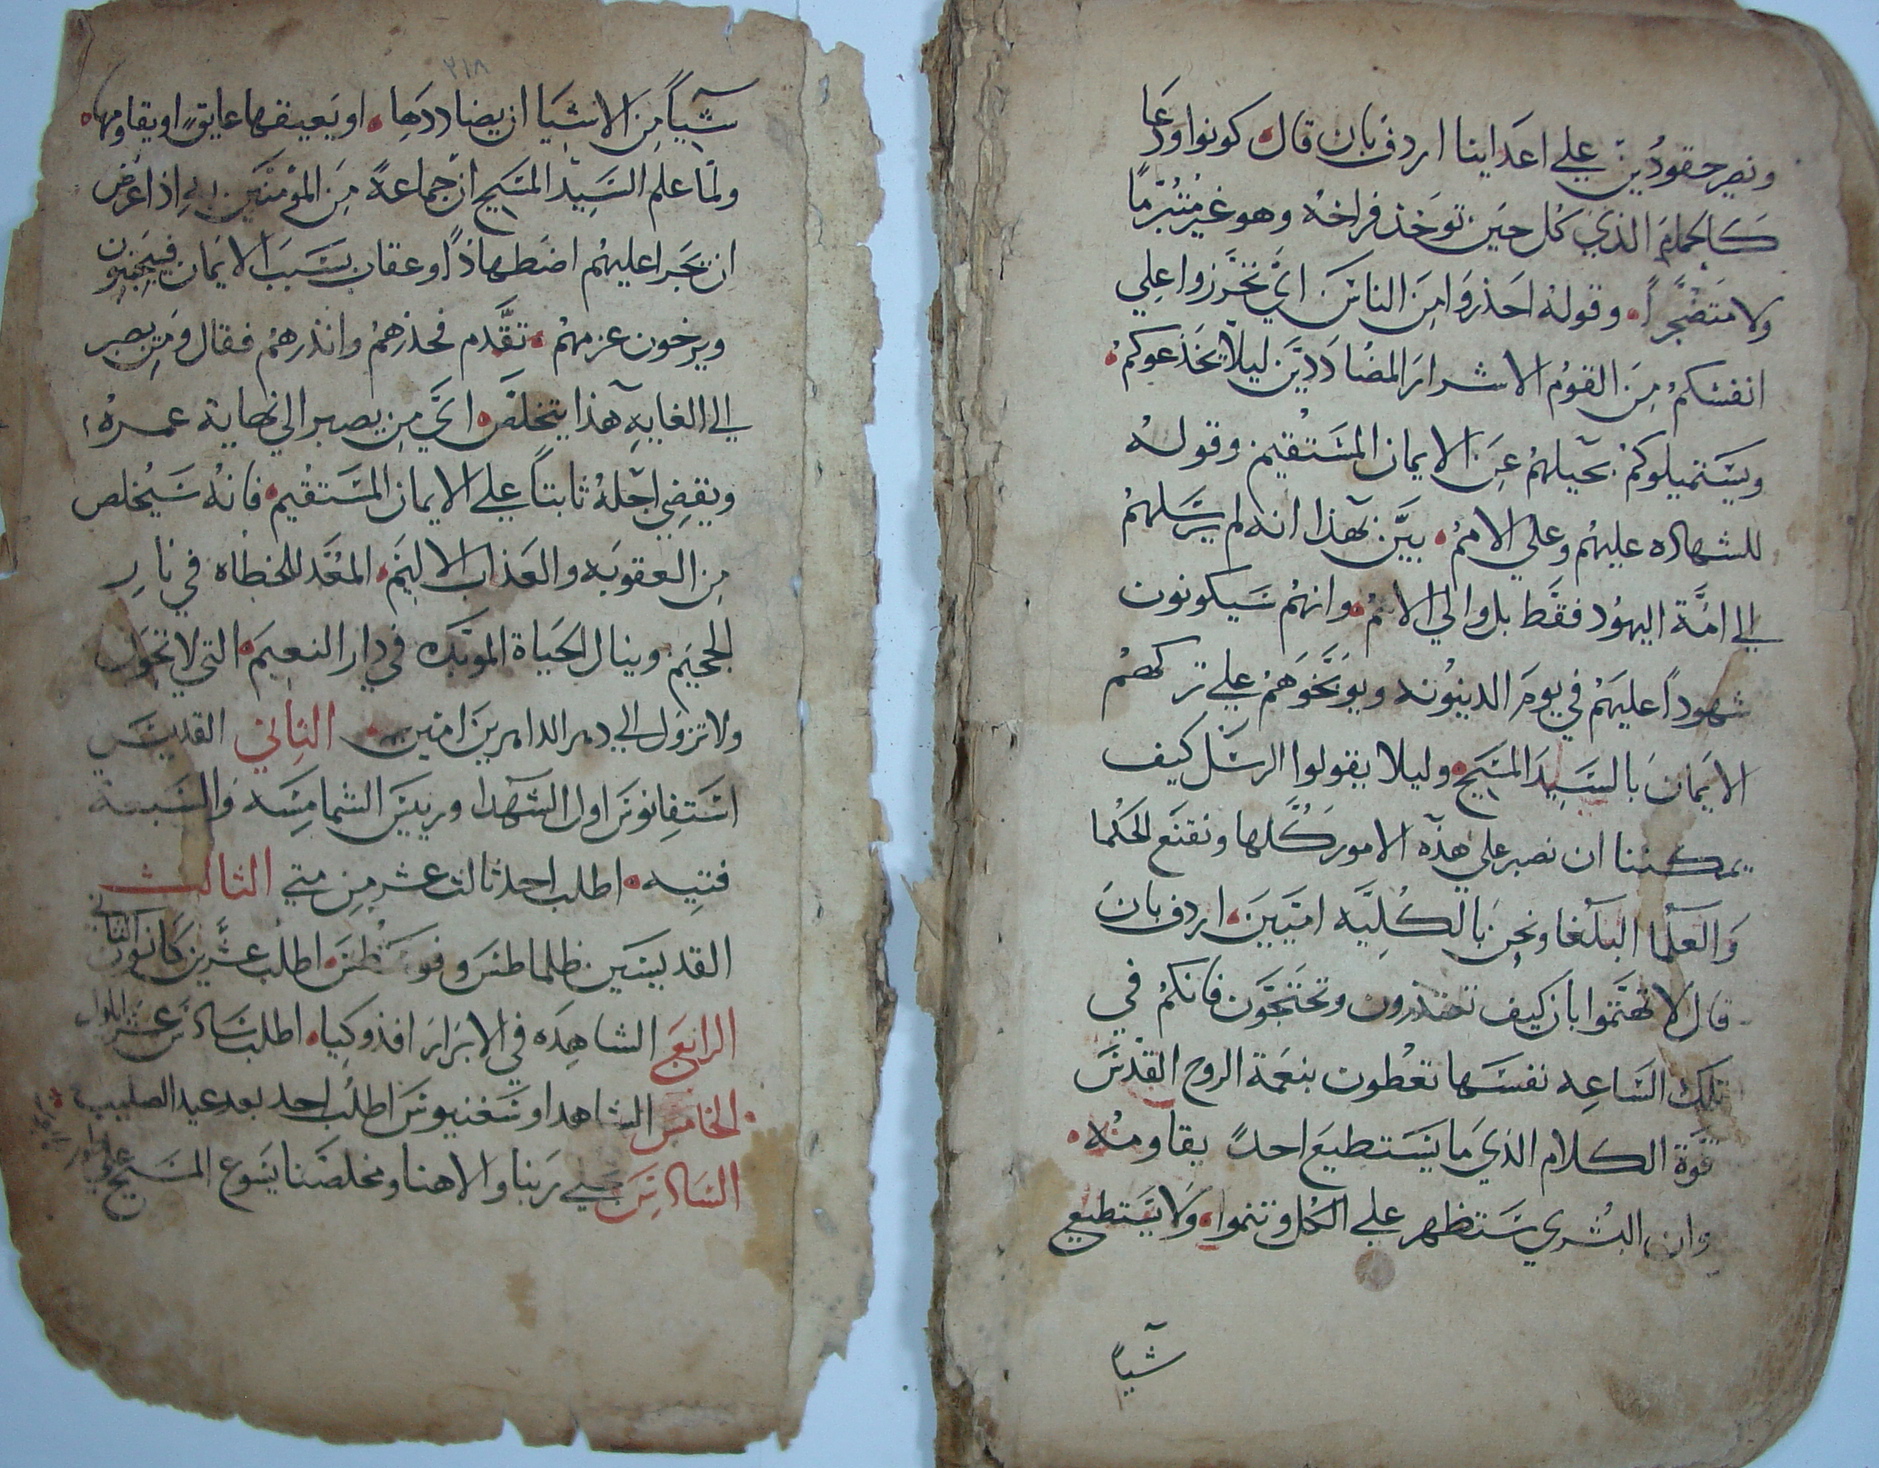 ونصر حقودين علي اعداينا اردف بان قال كونوا ودعا
كالحمام الذي كل حين توخذ فراخه وهو غير متبرمًا
ولا متضجرًا وقوله احذروا من الناس اي تحرزوا علي
انفسكم من القوم الاشرار المضاددين ليلا يخدعوكم
ويستميلوكم بحيلهم عن الايمان المستقيم وقوله
للشهاده عليهم وعلي الامم بين بهذا انه لم يرسلهم
الي امة اليهود فقط بل والي الامم وانهم سيكونون
شهودًا عليهم في يوم الدينونه ويوبخوهم علي تركهم
الايمان بالسيد المسيح وليلا يقولوا الرسل كيف
يمكننا ان نصبر علي هذه الامور كلها ونقنع الحكما
والعلما البلغا ونحن بالكليه اميين اردف بان
قال لا تهتموا بان كيف تعتذرون وتحتجون فانكم في
تلك الساعه نفسها تعطون بنعمة الروح القدس
قوة الكلام الذي ما يستطيع احدً يقاومه
وان البشري ستظهر علي الكل وتنموا ولا يستطيع
شيًا
٢١٨
شيًا من الاشيا ان يضاددها او يعيقها عايق او يقاومها
ولما علم السيد المسيح ان جماعة من المومنين به اذا عرض
ان يجرا عليهم اضطهادًا وعقاب بسبب الايمان فيجبنون
ويرخون عزمهم تقدم فحذرهم وانذرهم فقال ومن يصبر
الي الغايه هذا يتخلص اي من يصبر الي نهاية عمره
ويقضي اجله ثابتًا علي الايمان المستقيم فانه سيخلص
من العقوبه والعذاب الاليم المعد للخطاه في نار
الجحيم وينال الحياة الموبده في دار النعيم التي لا تحول
ولا تزول الي دهر الداهرين امين الثاني القديس
استفانوس اول الشهدا وريس الشمامسه والسبعة
فتيه اطلب احد ثالث عشر من متي الثالث
القديسين ظلماطس وفوسطس اطلب عشرين كانون الثاني
الرابع الشاهده في الابرار افذوكيا اطلب سادس عشر ايلول
الخامس الشاهد اوسغنيوس اطلب احد بعد عيد الصليب
السادس تجلي ربنا والاهنا ومخلصنا يسوع المسيح